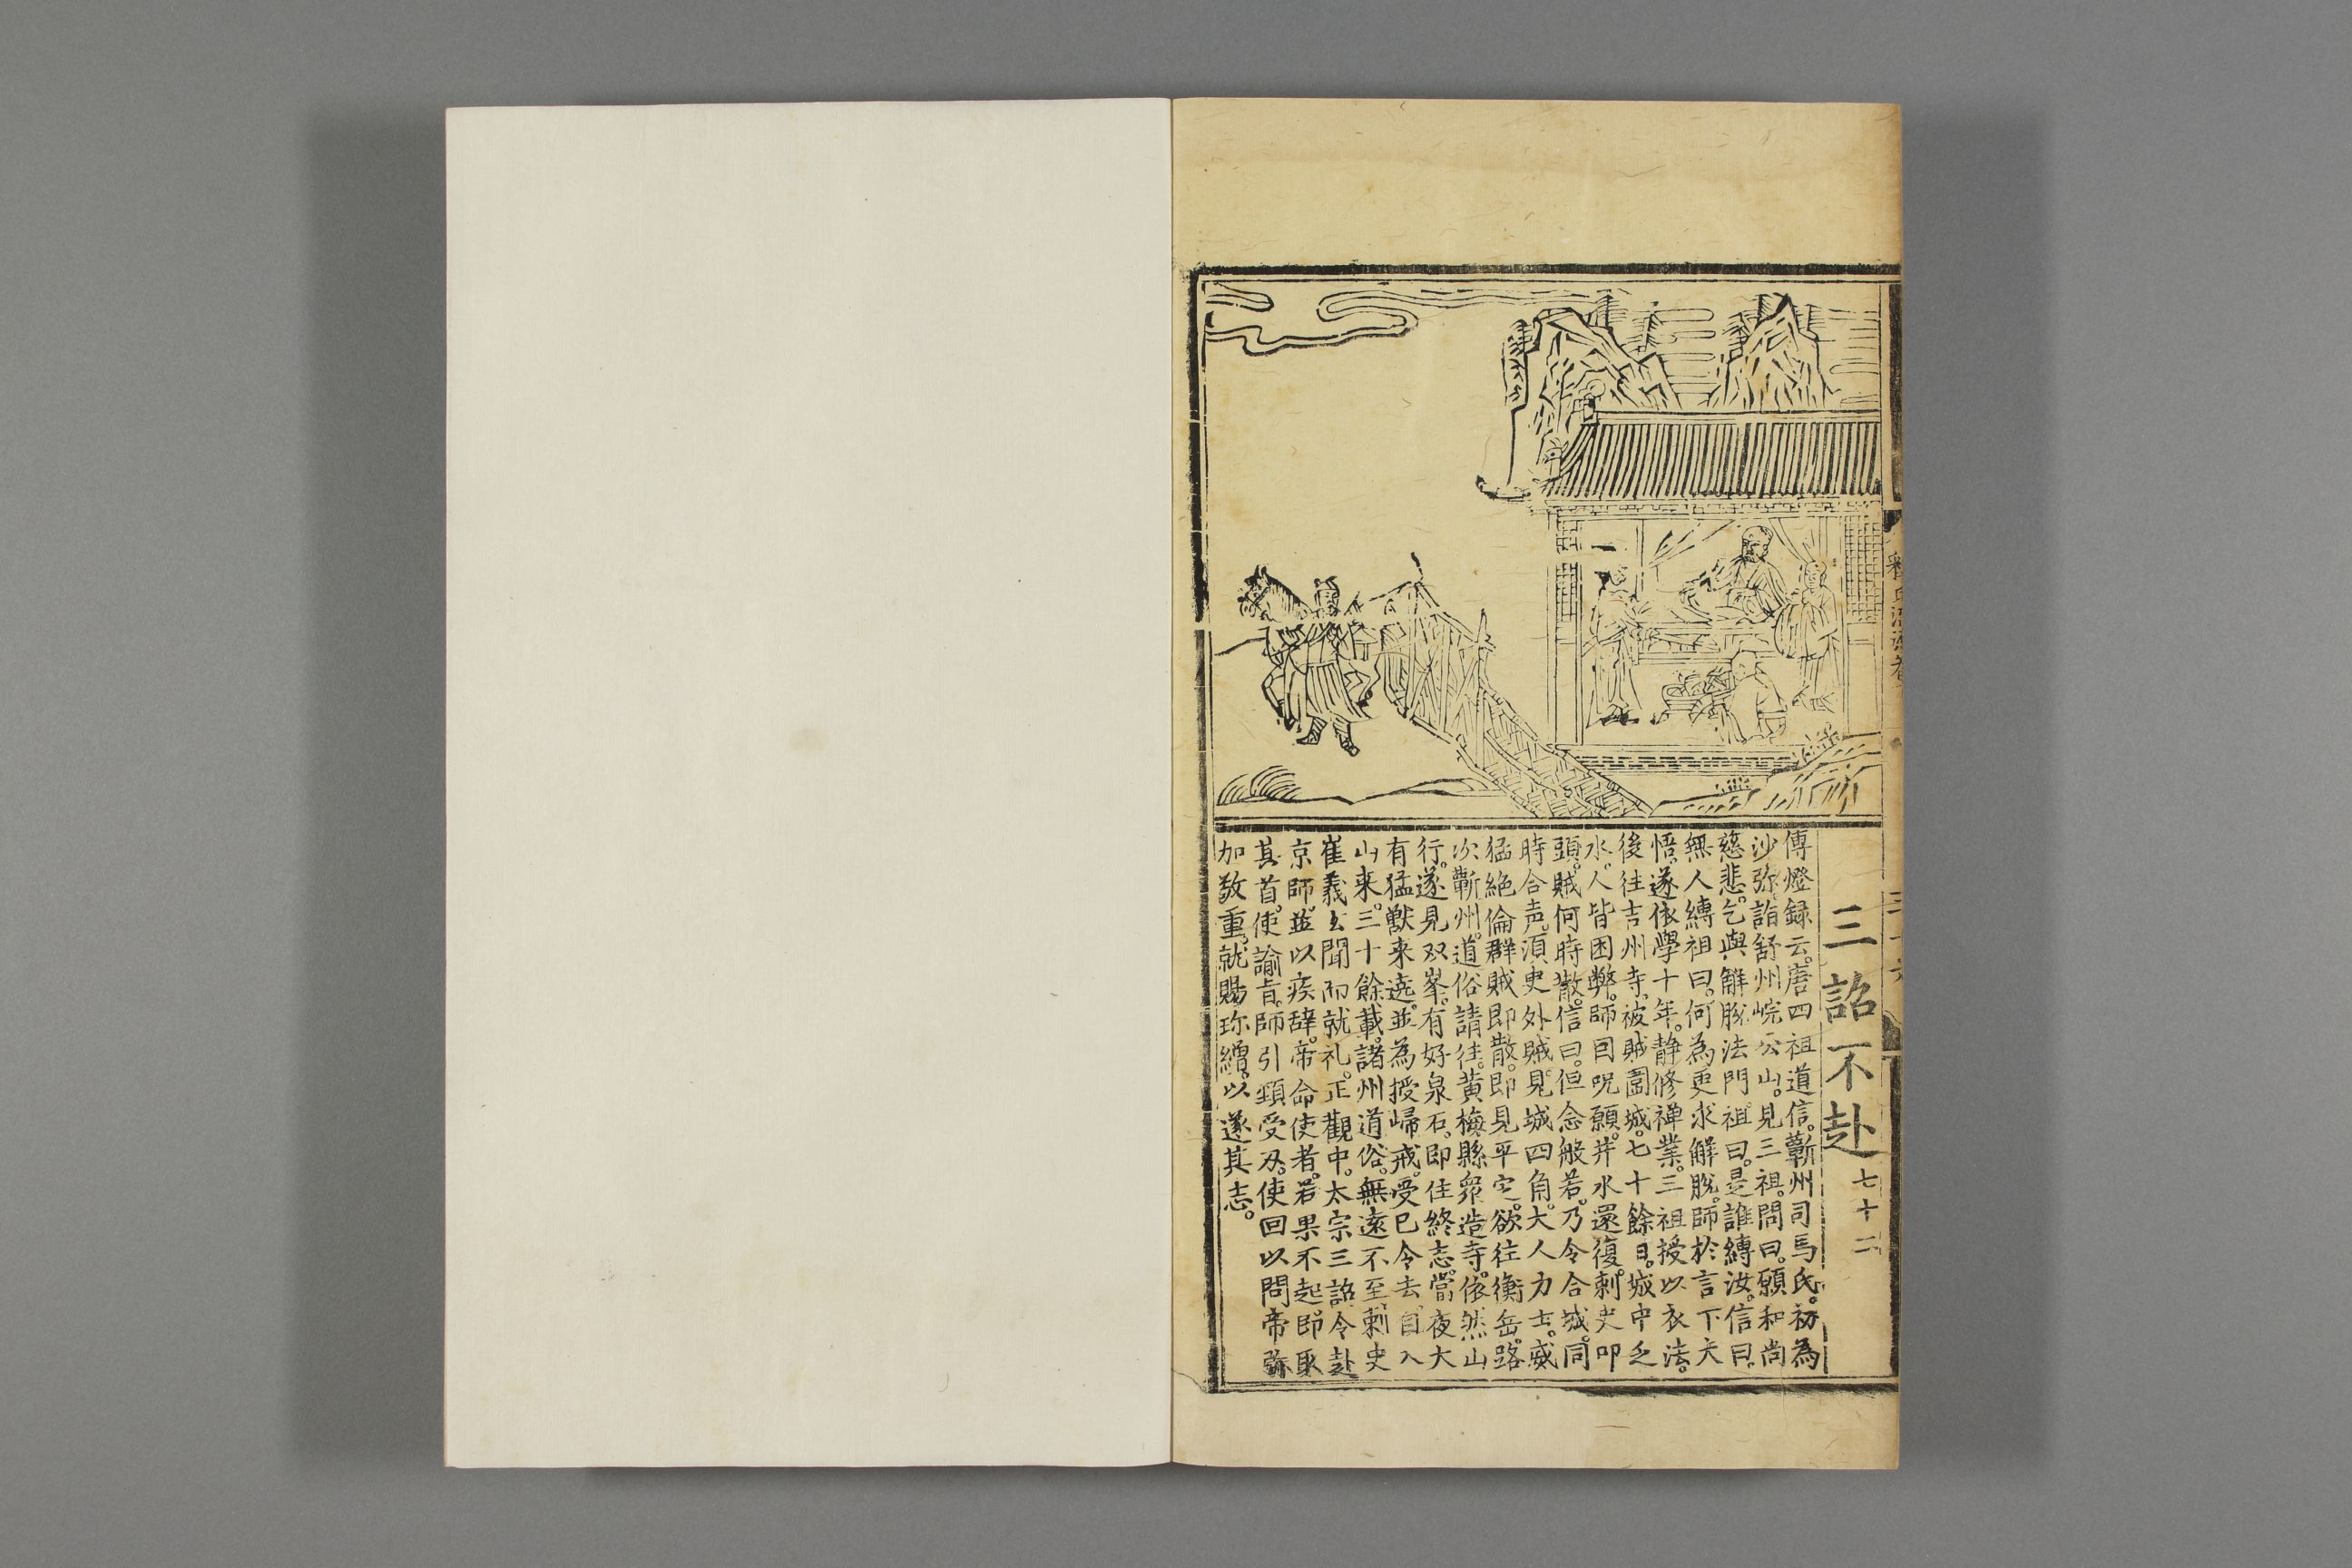 三詔不赴 七十二
傳燈録云。唐四祖道信。蘄州司馬氏。初為
沙弥。詣舒州皖公山。見三祖。問曰。願和尚
慈悲。乞與解脫法門。祖曰。是誰縛汝。信曰。
無人縛。祖曰。何為更求解脫。師於言下大
悟。遂依學十年。静修禅業。三祖授以衣法。
後往吉州寺。被賊圍城。七十餘日。城中乏
水。人皆困弊。師因呪願。井水還復。刺史叩
頭。賊何時散。信曰。但念般若。乃令合城。同
時合声。湏臾外賊。見城四角。大人力士。威
猛絶倫。群賊即散。即見平定。欲往衡岳。路
次蘄州。道俗請往。黄梅縣衆造寺。依然山
行。遂見双峯。有好泉石。即住終志。當夜大
有猛獣来遶。並為授歸戒。受已令去。自入
山来。三十餘載。諸州道俗。無遠不至。刺史
崔義玄聞而就礼。正觀中。太宗三詔令赴
京師。並以疾辞。帝命使者。若果不起。即取
其首。使諭旨。師引頸受刃。使回以問帝。弥
加敬重。就賜珎繒。以遂其志。